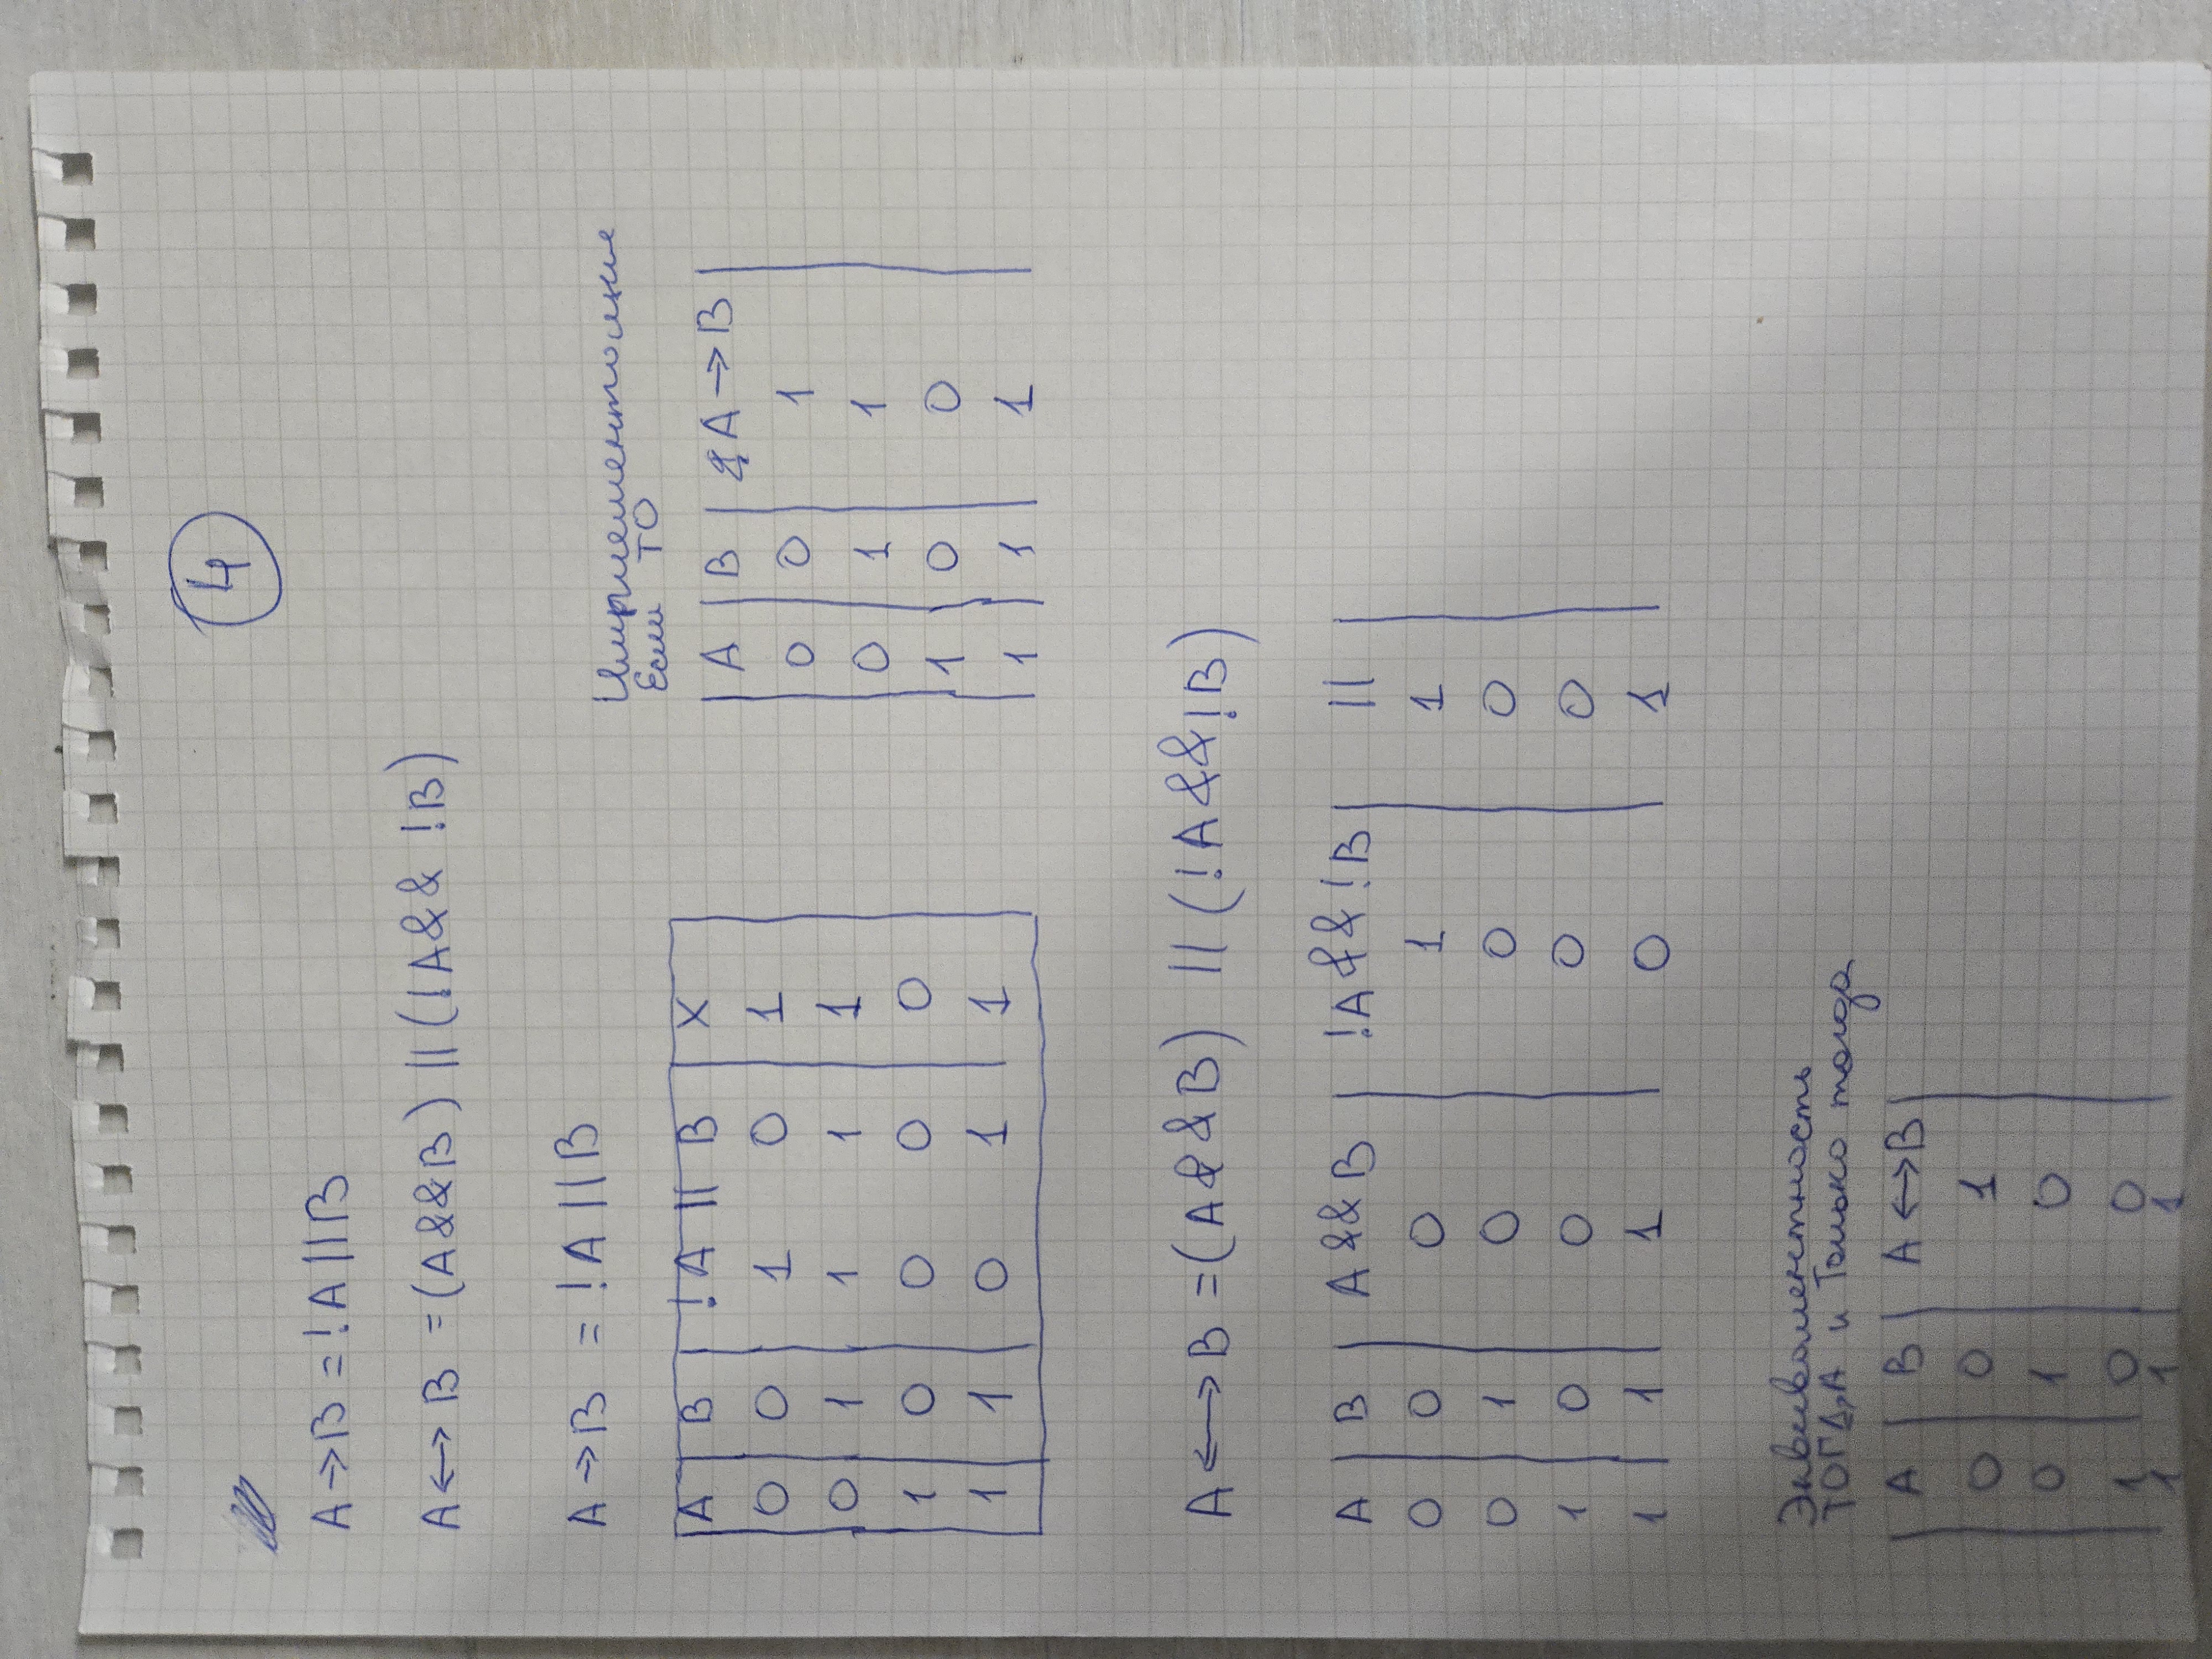 4
A→B = !A||B
A↔B = (A&&B) || (!A&& !B)
A→B = !A||B
A | B | !A || B | X
0 0 1 0 1
0 1 1 1 1
1 0 0 0 0
1 1 0 1 1
Если ТО
A | B | A→B
0 0 1
0 1 1
1 0 0
1 1 1
A↔B = (A&&B) || (!A&&!B)
A | B | A&&B | !A&&!B | ||
0 0 0 1 1
0 1 0 0 0
1 0 0 0 0
1 1 1 0 1
Эквивалентность
ТОГДА и Только тогда
A | B | A↔B
0 0 1
0 1 0
1 0 0
1 1 1